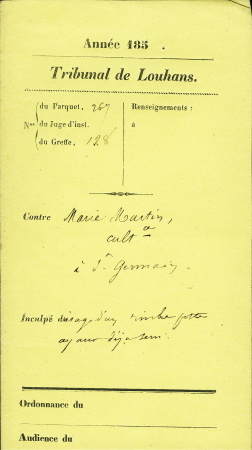 Année 185 .
Tribunal de Louhans.
Nos
du Parquet, 267
du Juge d'inst.
du Greffe, 128
Renseignements :
a
Contre Marie Martin,
cult
à St Germain
Inculpé d'usage d'un timbre poste
ayant déjà servi.
Ordonnance du
Audience du